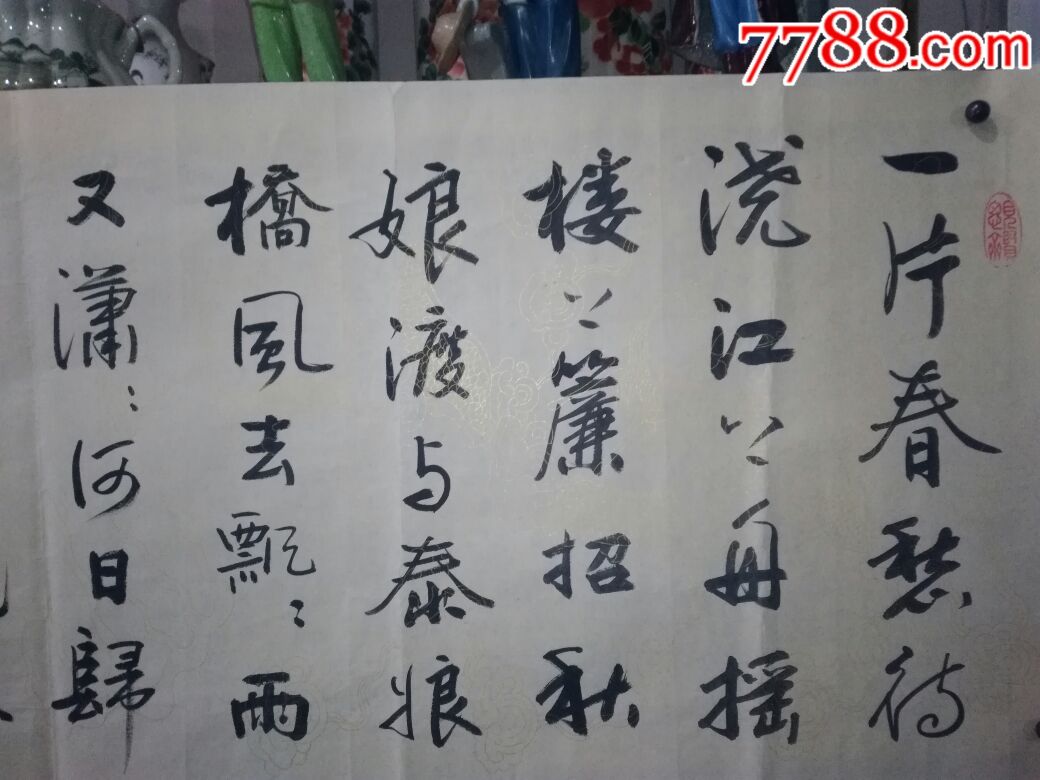 7788.com
一片春愁待
浇江上舟摇
楼上簾招秋
娘渡与泰娘
橋風去飄〻雨
又瀟〻何日歸